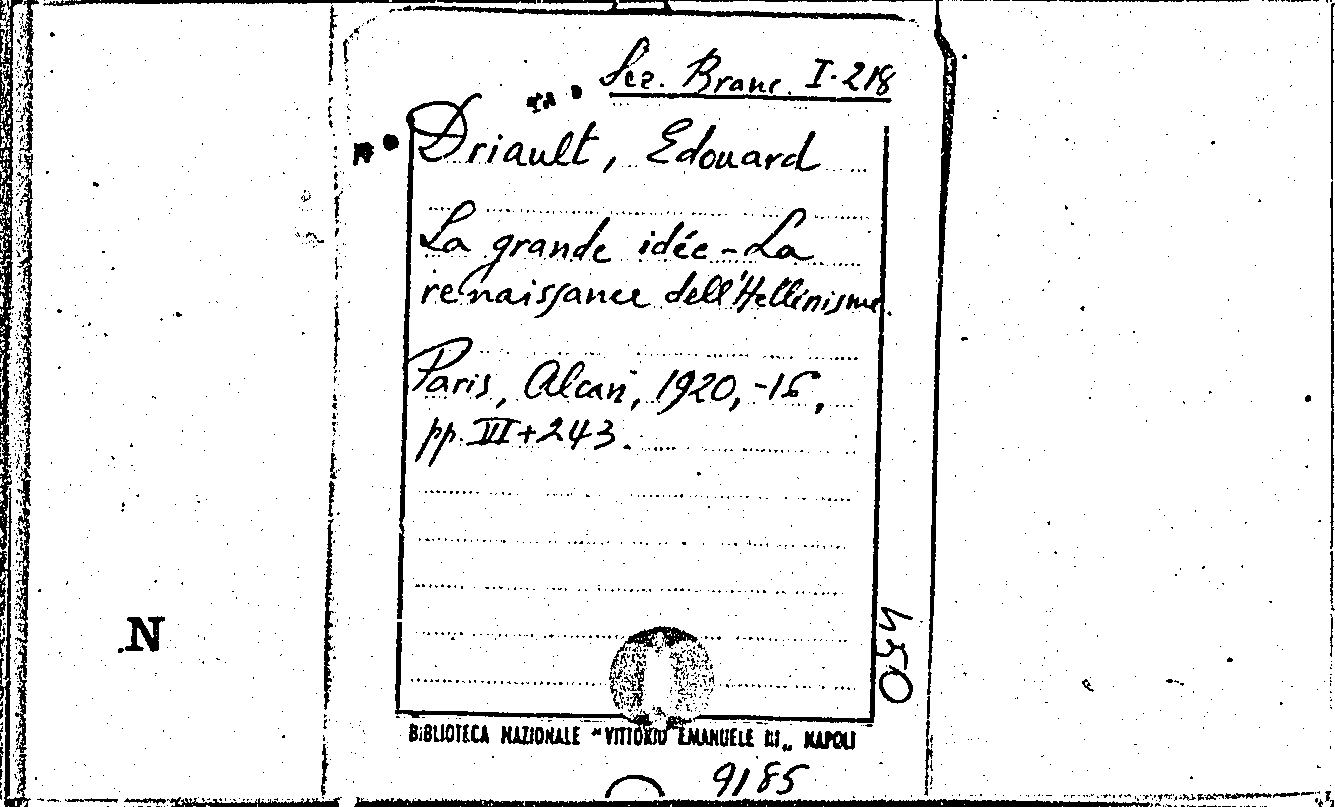 Sez. Branc. I-218
Driault, Edouard
La grande idée - La
renaissance dell'Hellénisme.
Paris, Alcan, 1920, -16,
pp. VI+243.
450
N
BIBLIOTECA NAZIONALE "VITTORIO EMANUELE III„ NAPOLI
9185